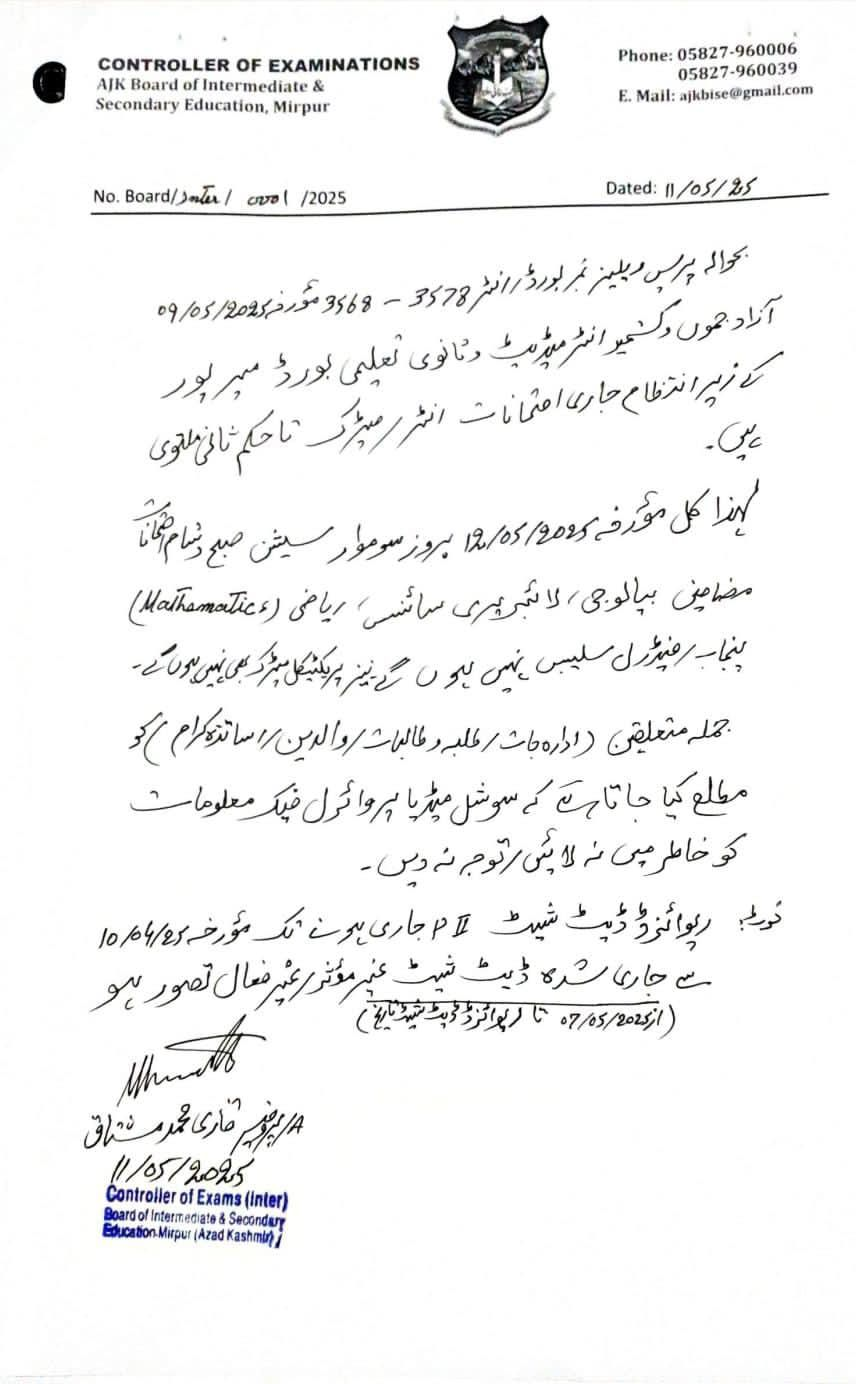 CONTROLLER OF EXAMINATIONS
AJK Board of Intermediate &
Secondary Education, Mirpur
Phone: 05827-960006
05827-960039
E. Mail: ajkbise@gmail.com
No. Board/Inter/ /2025
Dated: 11/05/25
بحوالہ پریس ریلیز نمبر بورڈ/انٹر 3578 – 3568 مؤرخہ 09/05/2025
آزاد جموں و کشمیر انٹرمیڈیٹ و ثانوی تعلیمی بورڈ میرپور
کے زیر انتظام جاری امتحانات انٹر/میٹرک تا حکم ثانی ملتوی
ہیں۔
لہذا کل مؤرخہ 12/05/2025 بروز سوموار سیشن صبح و شام امتحانات
مضامین بیالوجی/لائبریری سائنس/ریاضی (Mathematics)
پنجاب/فیڈرل سلیبس نہیں ہوں گے۔ نیز پریکٹیکل میٹرک بھی نہیں ہوں گے۔
جملہ متعلقین (ادارہ جات/طلبہ و طالبات/والدین/اساتذہ کرام) کو
مطلع کیا جاتا ہے کہ سوشل میڈیا پر وائرل فیک معلومات
کو خاطر میں نہ لائیں/توجہ نہ دیں۔
نوٹ: ریوائزڈ ڈیٹ شیٹ P II جاری ہونے تک مؤرخہ 10/04/25
سے جاری شدہ ڈیٹ شیٹ غیر مؤثر/غیر فعال تصور ہو
(از 07/05/2025 تا ریوائزڈ ڈیٹ شیٹ تاریخ)
A/پروفیسر قاری محمد مشتاق
11/05/2025
Controller of Exams (Inter)
Board of Intermediate & Secondary
Education Mirpur (Azad Kashmir)